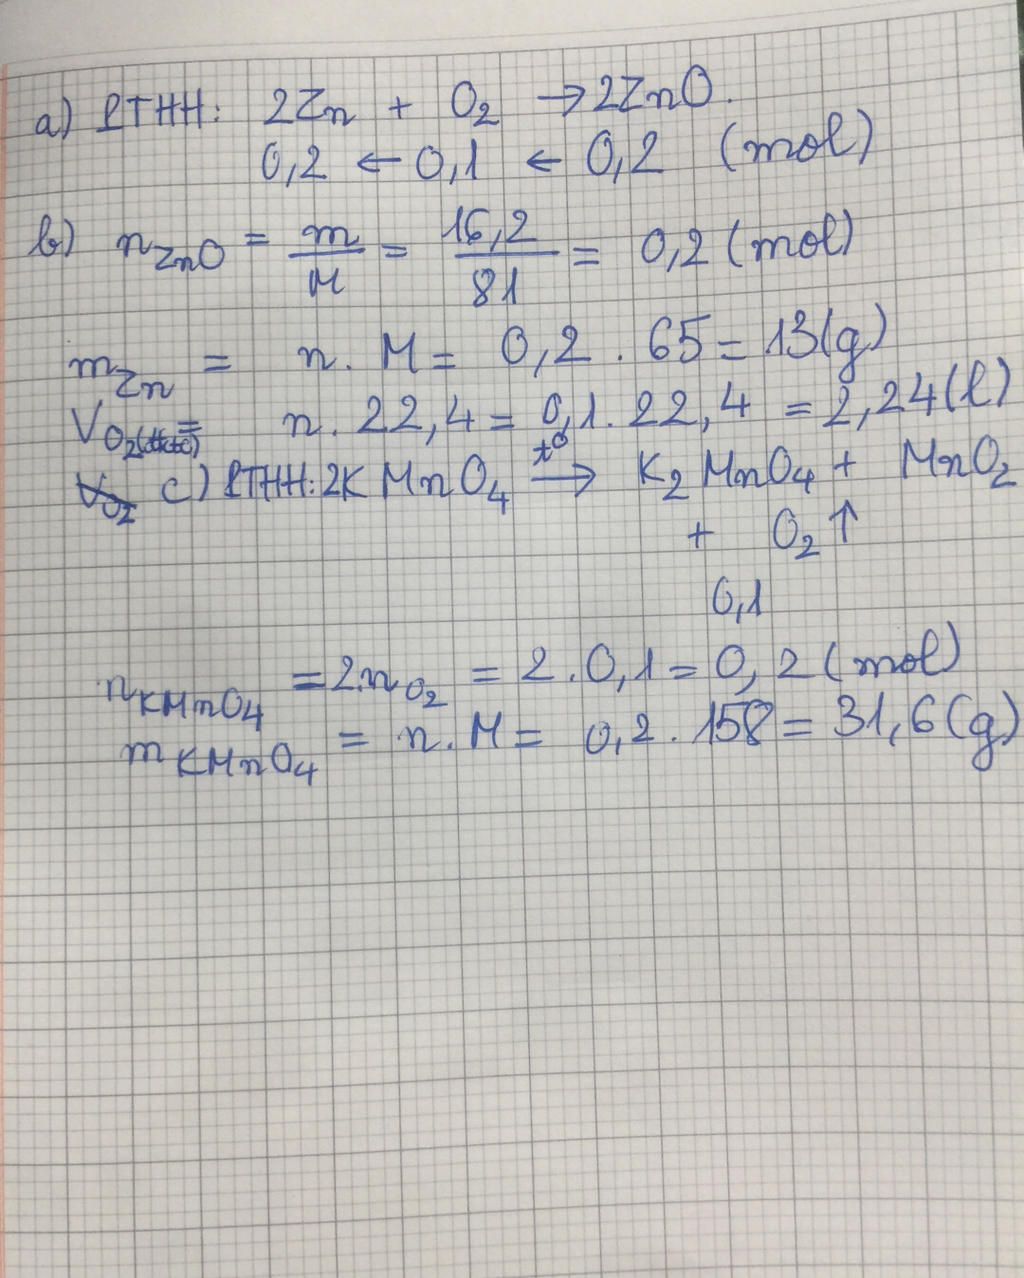 a) PTHH: 2Zn + O2 → 2ZnO.
0,2 ← 0,1 ← 0,2 (mol)
b) nZnO = m/M = 16,2/81 = 0,2 (mol)
mZn = n. M = 0,2 . 65 = 13(g)
VO2(đktc) = n. 22,4 = 0,1. 22,4 = 2,24(l)
VO2 c) PTHH: 2KMnO4 t° → K2MnO4 + MnO2
+ O2 ↑
0,1
nKMnO4 = 2.nO2 = 2.0,1 = 0,2 (mol)
mKMnO4 = n. M = 0,2. 158 = 31,6(g)